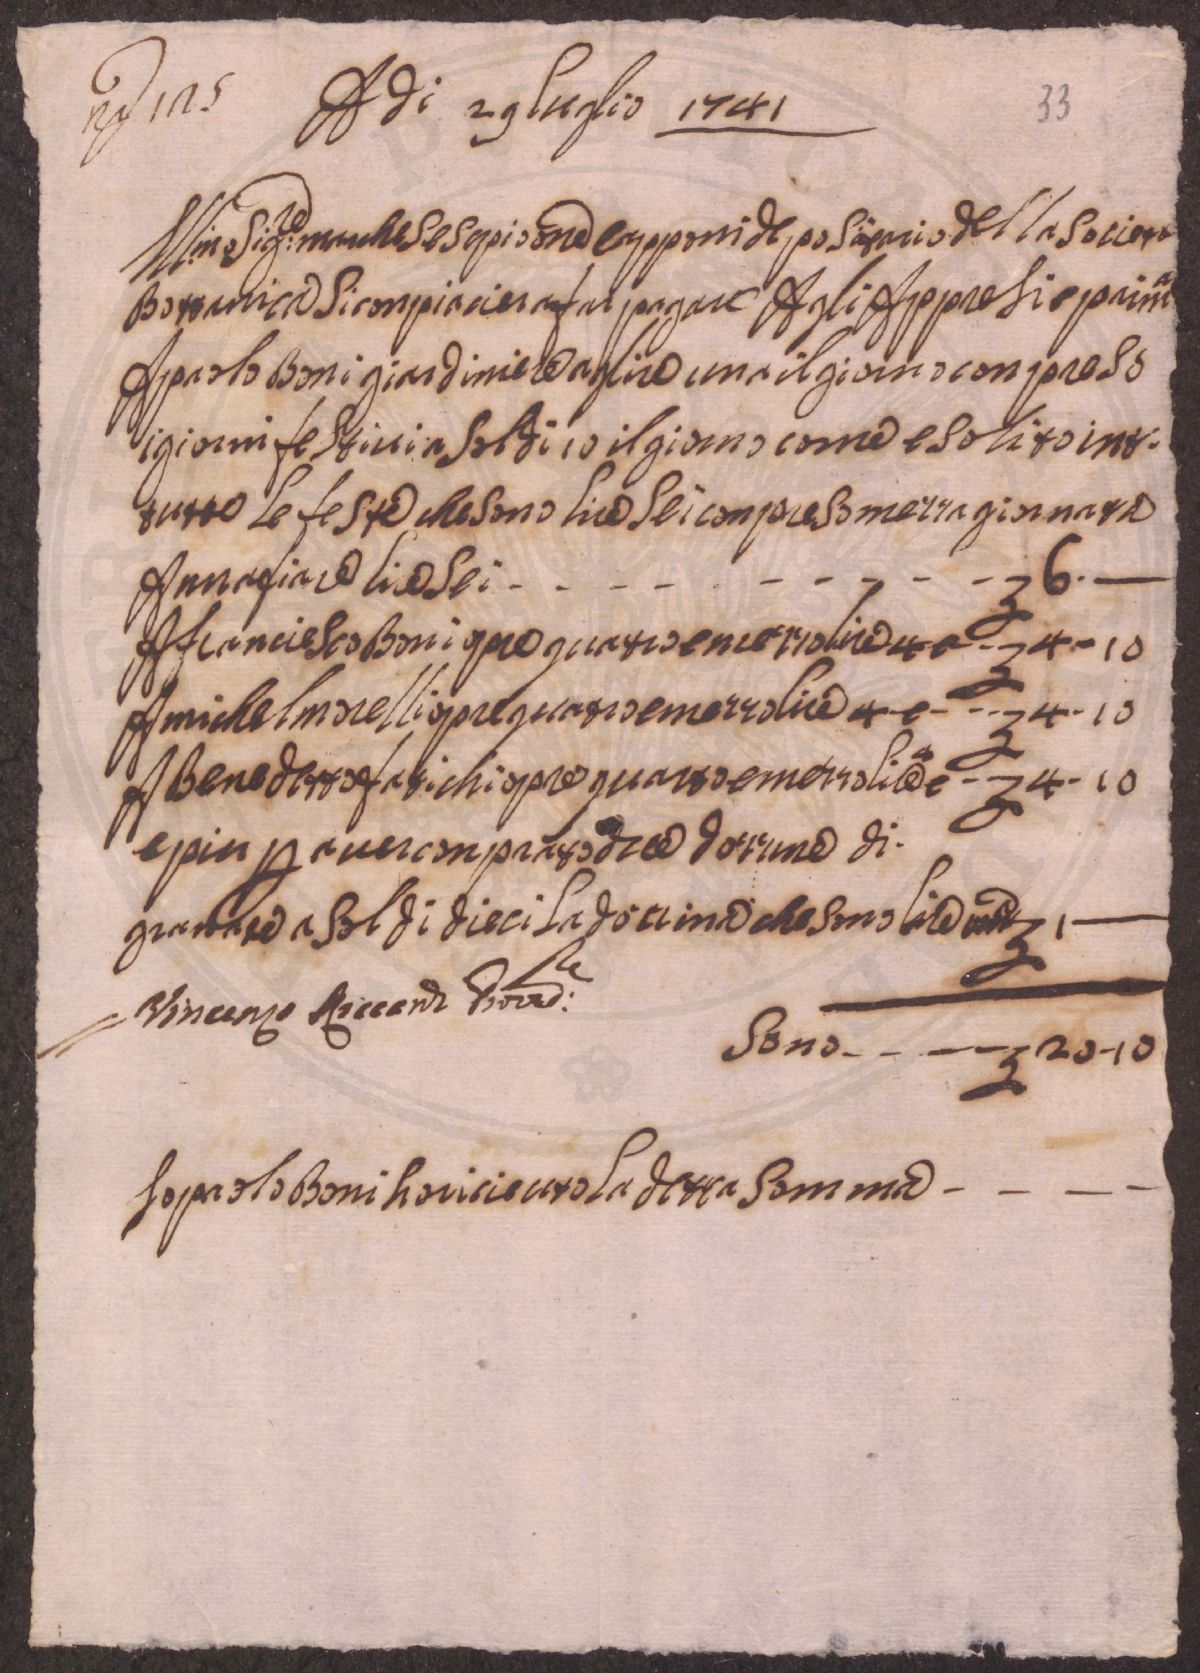 N.º 125
A Di 29 luglio 1741
33
Ill.mo Sig.re marchese Scpione Capponi depositario della Societa
Bottanica Si conpiaciera far pagare Agli Appresi e prima
A paolo Boni giardiniere a lire una il giorno conpreso
i giorni festivi a Soldi 10 il giorno come e solito in t.
tutte Le feste che sono lire Sei conpreso mezza giornata
Annafiare lire Sei - - - - - - - - 6. —
A franciesco Boni opre quatro e mezzo lire 4 e - - 4 - 10
A michel morelli opre quatro e mezzo lire 4 e - - 4 - 10
A Benedetto fatichi opre quatro e mezzo lire 4 e - - 4 - 10
e piu p auer conprato due dozzine di.
granate a Soldi dieci La dozzina che sono lire una 1 —
Vincenzo Riccardi Proved.re:
Sono - - - - 20 - 10
Io paolo Boni ho riceuto La detta Somma - - - -